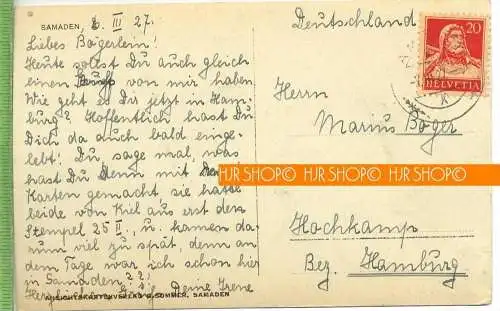 SAMADEN, 6. III 27.
Liebes Bögerlein!
Heute sollst Du auch gleich
einen Gruß von mir haben
Wie geht es Dir jetzt in Ham-
burg? Hoffentlich hast Du
Dich da auch bald einge-
lebt! Du sage mal, was
hast Du denn mit den
Karten gemacht sie hatte
beide von Kiel aus erst den
Stempel 25 II., u. kamen da-
rum viel zu spät, denn an
dem Tage war ich schon hier
in Samaden??
Herzlichen Gruß Deine Irene
ANSICHTSKARTENVERLAG G. SOMMER, SAMADEN
Deutschland
20
HELVETIA
Herrn
Marius Böger
HJR SHOP© HJR SHOP© HJR SHOP©
Hochkamp
Bez. Hamburg